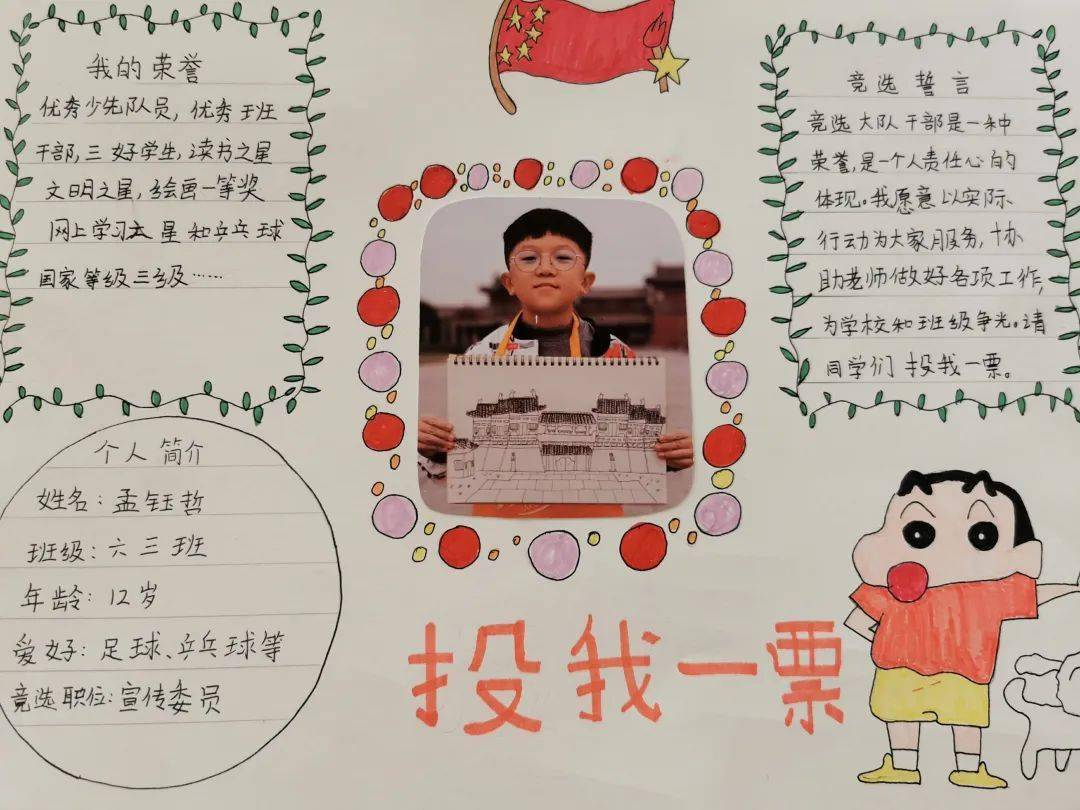 我的荣誉
优秀少先队员，优秀班
干部，三好学生，读书之星
文明之星，绘画一等奖
网上学习之星和乒乓球
国家等级三级……
竞选誓言
竞选大队干部是一种
荣誉，是一个人责任心的
体现。我愿意以实际
行动为大家服务，协
助老师做好各项工作，
为学校和班级争光。请
同学们投我一票。
个人简介
姓名：孟钰哲
班级：六三班
年龄：12岁
爱好：足球、乒乓球等
竞选职位：宣传委员
投我一票